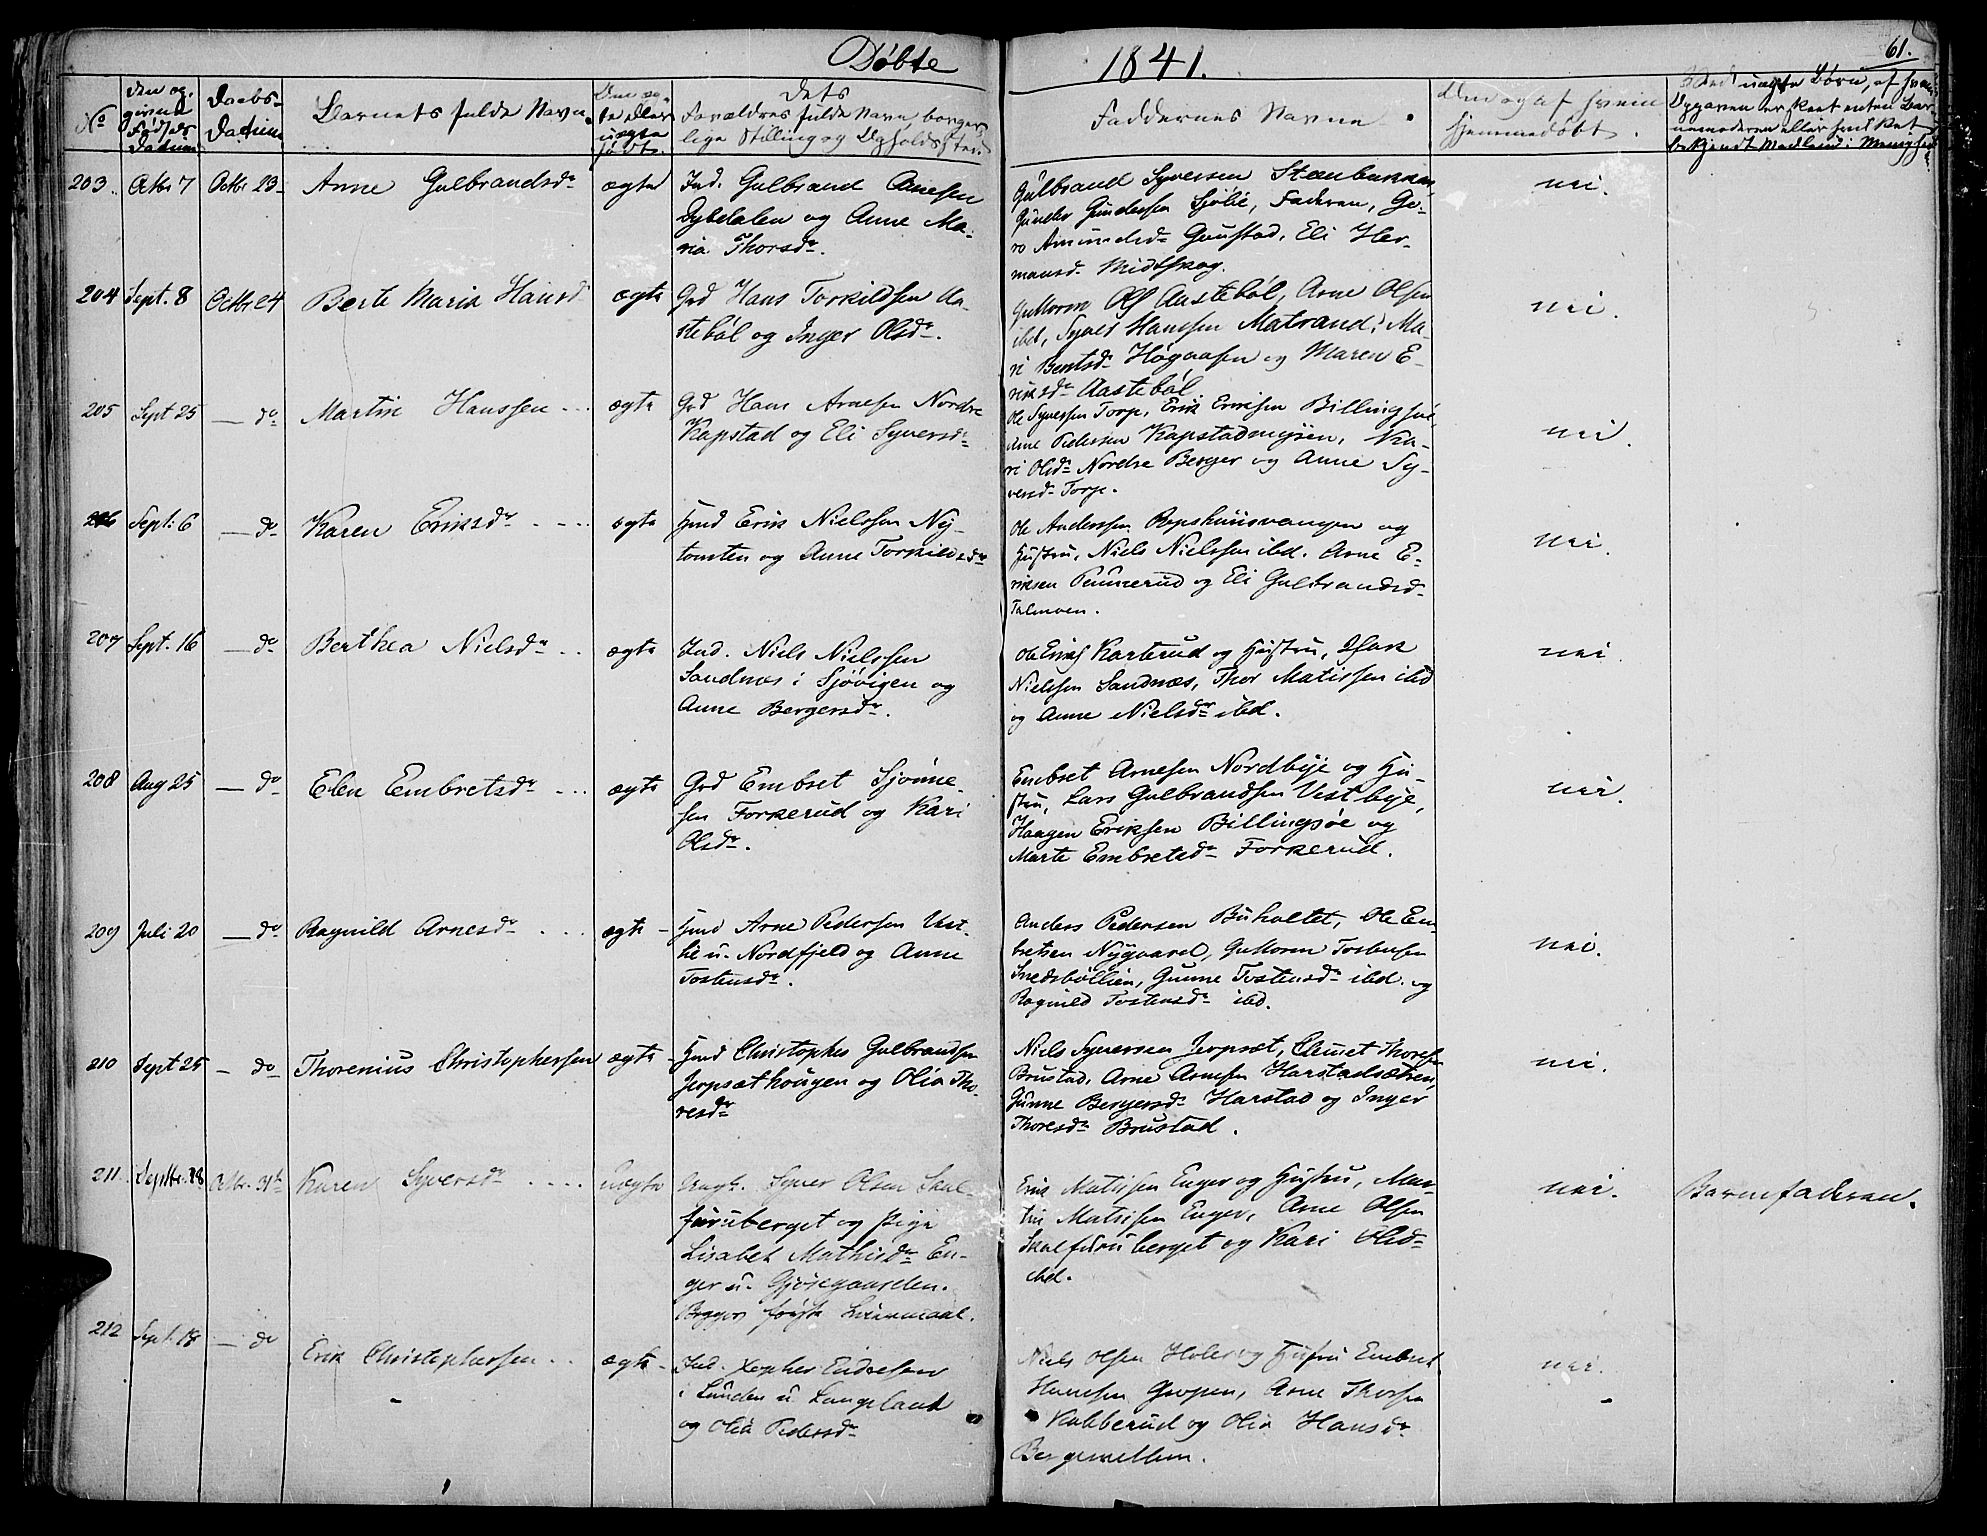 Döbte 1841. 61.
No
Den opgivne Fødsels Datum
Daabs-Datum
Barnets fulde Navn.
Den ægte eller uægte født.
Dets Forældres fulde Navn borgerlige Stilling og Opholdssted
Faddernes Navne.
Om og af hvem hjemmedöbt.
203. Octbr 7 Octbr. 23 Anne Gulbrandsdr ægte
Ind. Gulbrand Arnesen
Dybedalen og Anne Ma-
ria Thorsdr.
Gulbrand Syversen Stenbakken,
Gunder Gundersen Sjölie, Faderen, Ge-
ro Amundsdr Gaustad, Eli Her-
mansd. Midtskog.
nei.
204 Sept. 8 Octbr. 24 Berte Maria Hansd ægte
Grd Hans Torkildsen Aa-
steböl og Inger Olsdr.
Guttorm Ols Aasteböl, Arne Olsen
ibd, Syver Hansen Matrand, Ma-
ri Berntsdr Högaasen og Maren E-
riksdr Aasteböl
nei.
205 Sept 25 — do Martin Hanssen ægte
Grd Hans Arnesen Nordre
Kapstad og Eli Syversdr
Ole Syversen Torp, Erik Eriksen Billingsöe,
Arne Pedersen Kapstadmysen, Ka-
ri Olsdr Nordre Berger og Anne Sy-
versdr Torp.
nei.
206 Sept. 6 — do Karen Eriksdr ægte
Hmd Erik Nielssen Ny-
tomten og Anne Torkildsdr
Ole Anderssen Ropshuusvangen og
Hustru, Niels Nielssen ibd. Arne E-
riksen Pennerud og Eli Gulbrandsd-
Talmoen.
nei.
207 Sept. 16 — do Berthea Nielsdr ægte
Ind. Niels Nielssen
Sandnes i Sjövigen og
Anne Bergersdr.
Ole Eriks Karterud og Hustru, Isak
Nielssen Sandnæs, Thor Matissen ibd
og Anne Nielsdr ibd.
nei.
208 Aug 25 — do Elen Embretsdr ægte
Grd Embret Sjönne-
sen Forkerud og Kari
Olsdr.
Embret Arnesen Nordbye og Hu-
stru, Lars Gulbrandsen Vestbye,
Haagen Eriksen Billingsöe og
Marte Embretsdr Forkerud.
nei.
209 Juli 20 — do Ragnild Arnesdr ægte
Hmd Arne Pedersen Vest-
bl u. Nordfjeld og Anne
Tostensdr.
Anders Pedersen Buholtet, Ole Em-
bretsen Nygaard, Guttorm Tostensen
Snedsböllien, Gunne Tostensdr ibd. og
Ragnild Tostensdr ibd.
nei.
210 Sept 25 — do Thorenius Christophersen ægte
Hmd Christopher Gulbrandsen
Jerpsæthougen og Olia Tho-
resdr
Niels Syversen Jerpsæt, Clemet Thoresen
Brustad, Arne Arnesen Harstadsætren,
Gunne Bergersdr Harstad og Inger
Thoresdr Brustad.
nei.
211 Septbr. 28 Octbr. 31te Karen Syversdr uægte
Ungk. Syver Olsen Skal-
furuberget og Pige
Lisabet Mathisdr En-
ger u. Gjösegaarden.
Begges første Leiermaal.
Erik Matissen Enger og Hustru, Mar-
tin Matissen Enger, Arne Olsen
Skalfuruberget og Kari Olsd-
ibd.
nei.
Barnefaderen.
212 Sept. 18 — do Erik Christophersen ægte
Ind. Xopher Endresen
i Lunden u Langeland
og Olia Pedersdr
Niels Olsen Holer og Hustru Embret
Hansen Gropen, Arne Thorsen
Kabberud og Olia Hansdr
Bergervellem.
nei.